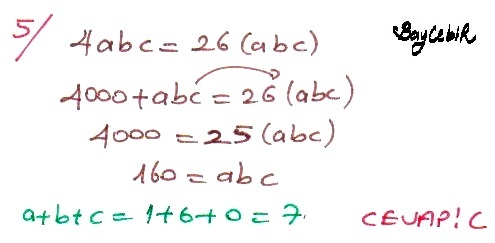 5/ 4abc = 26 (abc)
BayCebiR
4000 + abc = 26 (abc)
4000 = 25 (abc)
160 = abc
a+b+c = 1+6+0 = 7.
CEVAP! C